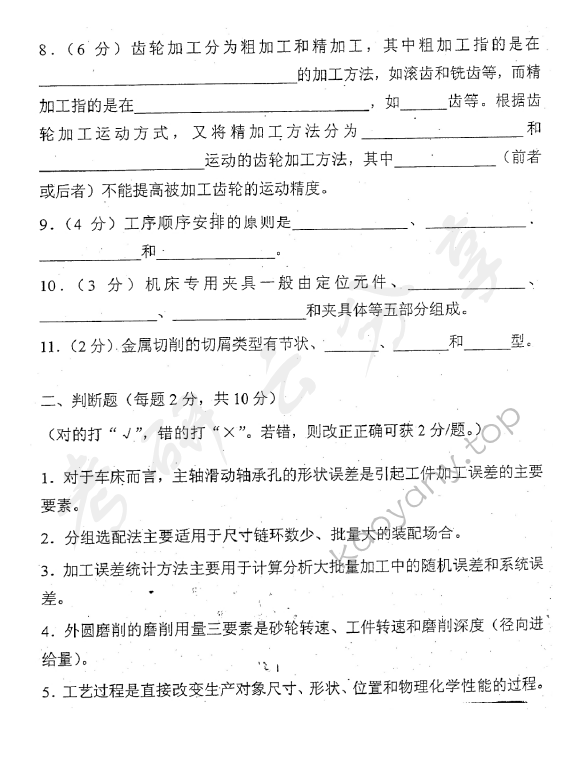 8.（6 分）齿轮加工分为粗加工和精加工，其中粗加工指的是在
______________________的加工方法，如滚齿和铣齿等，而精
加工指的是在____________________，如____齿等。根据齿
轮加工运动方式，又将精加工方法分为______________和
______________运动的齿轮加工方法，其中_________（前者
或后者）不能提高被加工齿轮的运动精度。
9.（4 分）工序顺序安排的原则是__________、_________、
__________和__________。
10.（3 分）机床专用夹具一般由定位元件、__________、
__________、____________和夹具体等五部分组成。
11.（2 分）金属切削的切屑类型有节状、_____、_____和_____型。
二、判断题（每题 2 分，共 10 分）
（对的打“√”，错的打“×”。若错，则改正正确可获 2 分/题。）
1．对于车床而言，主轴滑动轴承孔的形状误差是引起工件加工误差的主要
要素。
2．分组选配法主要适用于尺寸链环数少、批量大的装配场合。
3．加工误差统计方法主要用于计算分析大批量加工中的随机误差和系统误
差。
4．外圆磨削的磨削用量三要素是砂轮转速、工件转速和磨削深度（径向进
给量）。
5．工艺过程是直接改变生产对象尺寸、形状、位置和物理化学性能的过程。
考研云分享
kaoyany.top